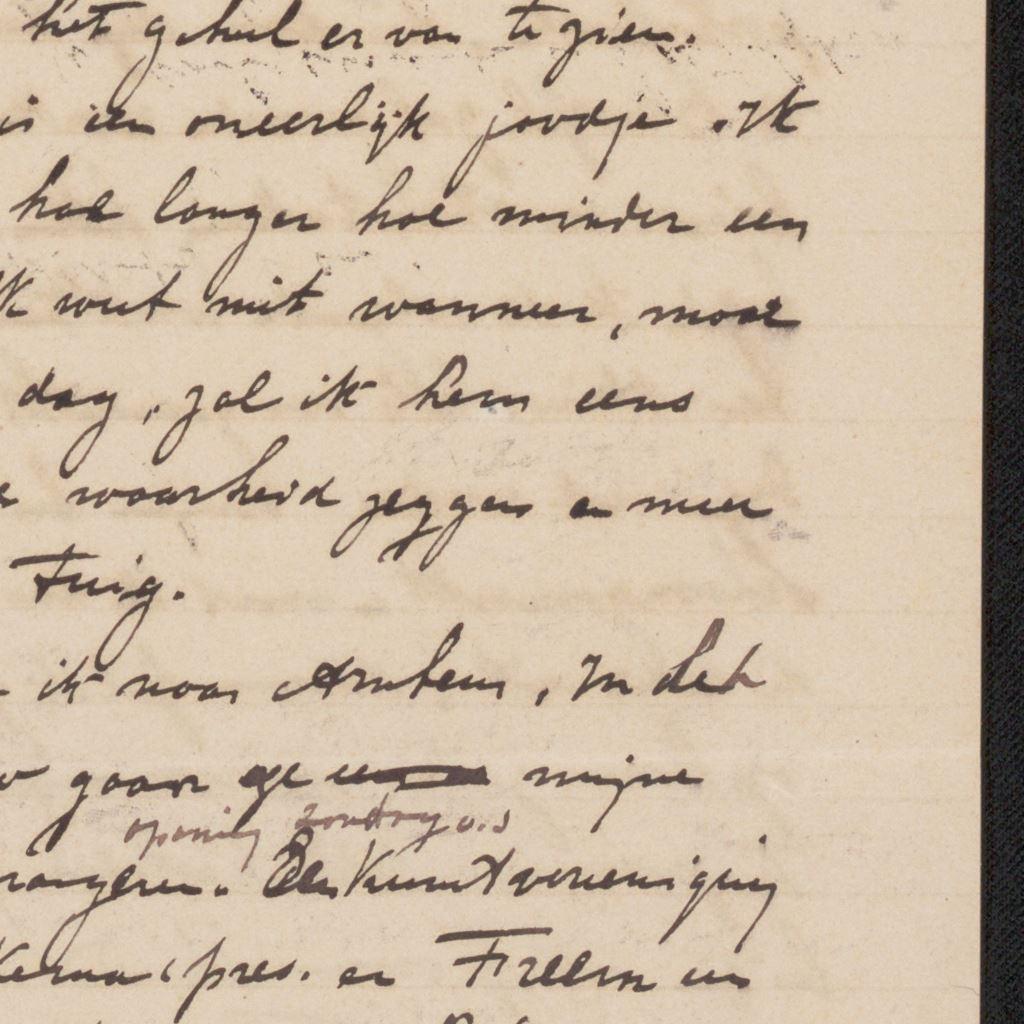 het geheel er van te zien.
is een oneerlijk joodje. Ik
hoe langer hoe minder een
Ik weet niet wanneer, maar
dag, zal ik hem eens
waarheid zeggen en meer
Tuig.
ik naar Arnhem, In het
gaan ge mijne
opening zondag a.s
rangeren. Een Kunstvereeniging
pres. en Freem een